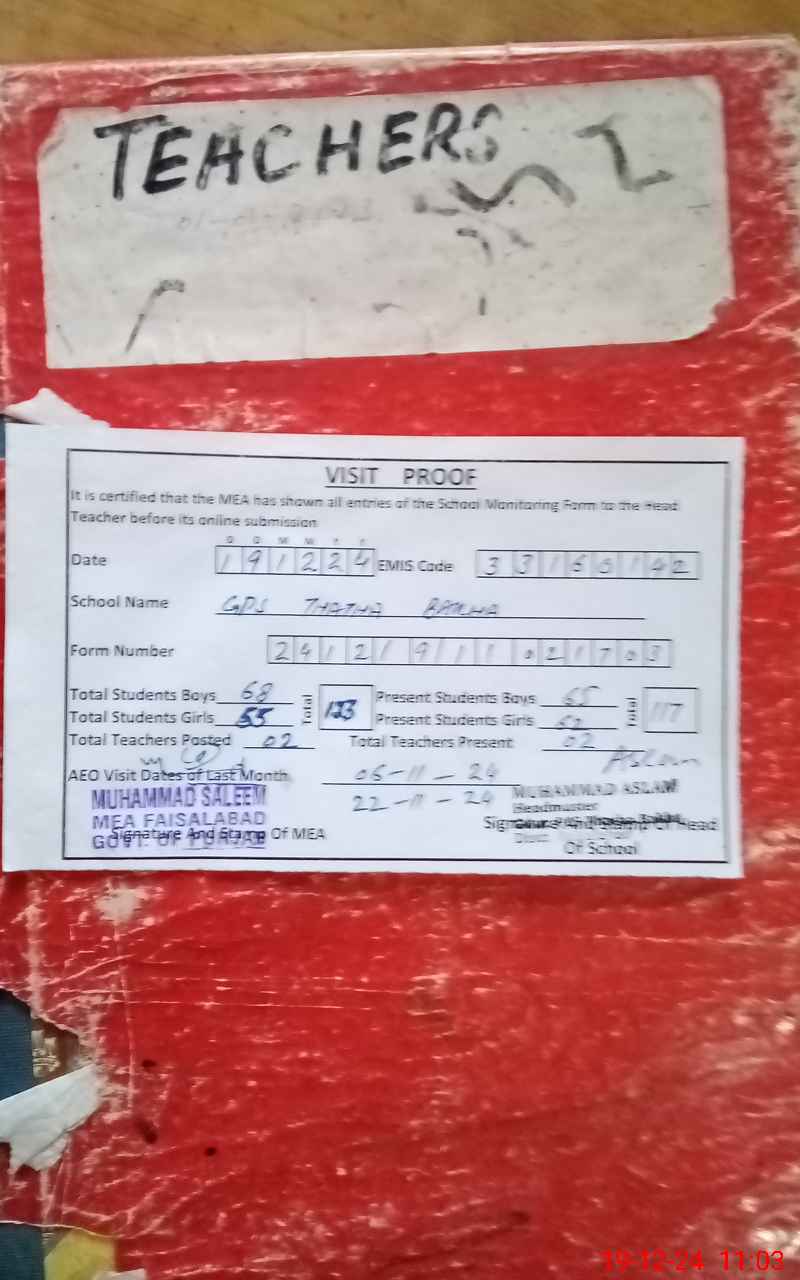 TEACHERS
VISIT PROOF
It is certified that the MEA has shown all entries of the School Monitoring Form to the Head
Teacher before its online submission
D D M M Y Y
Date 191224 EMIS Code 33160142
School Name GPS THATHA
Form Number 24121911021703
Total Students Boys 68 Total 123 Present Students Boys 65 Total 117
Total Students Girls 55 Present Students Girls 52
Total Teachers Posted 02 Total Teachers Present 02
Aslam
AEO Visit Dates of Last Month 06-11-24
22-11-24
MUHAMMAD SALEEM
MEA FAISALABAD
GOVT. OF PUNJAB
Signature And Stamp Of MEA
MUHAMMAD ASLAM
Headmaster
Signature And Stamp Of Head
Of School
19-12-24 11:03